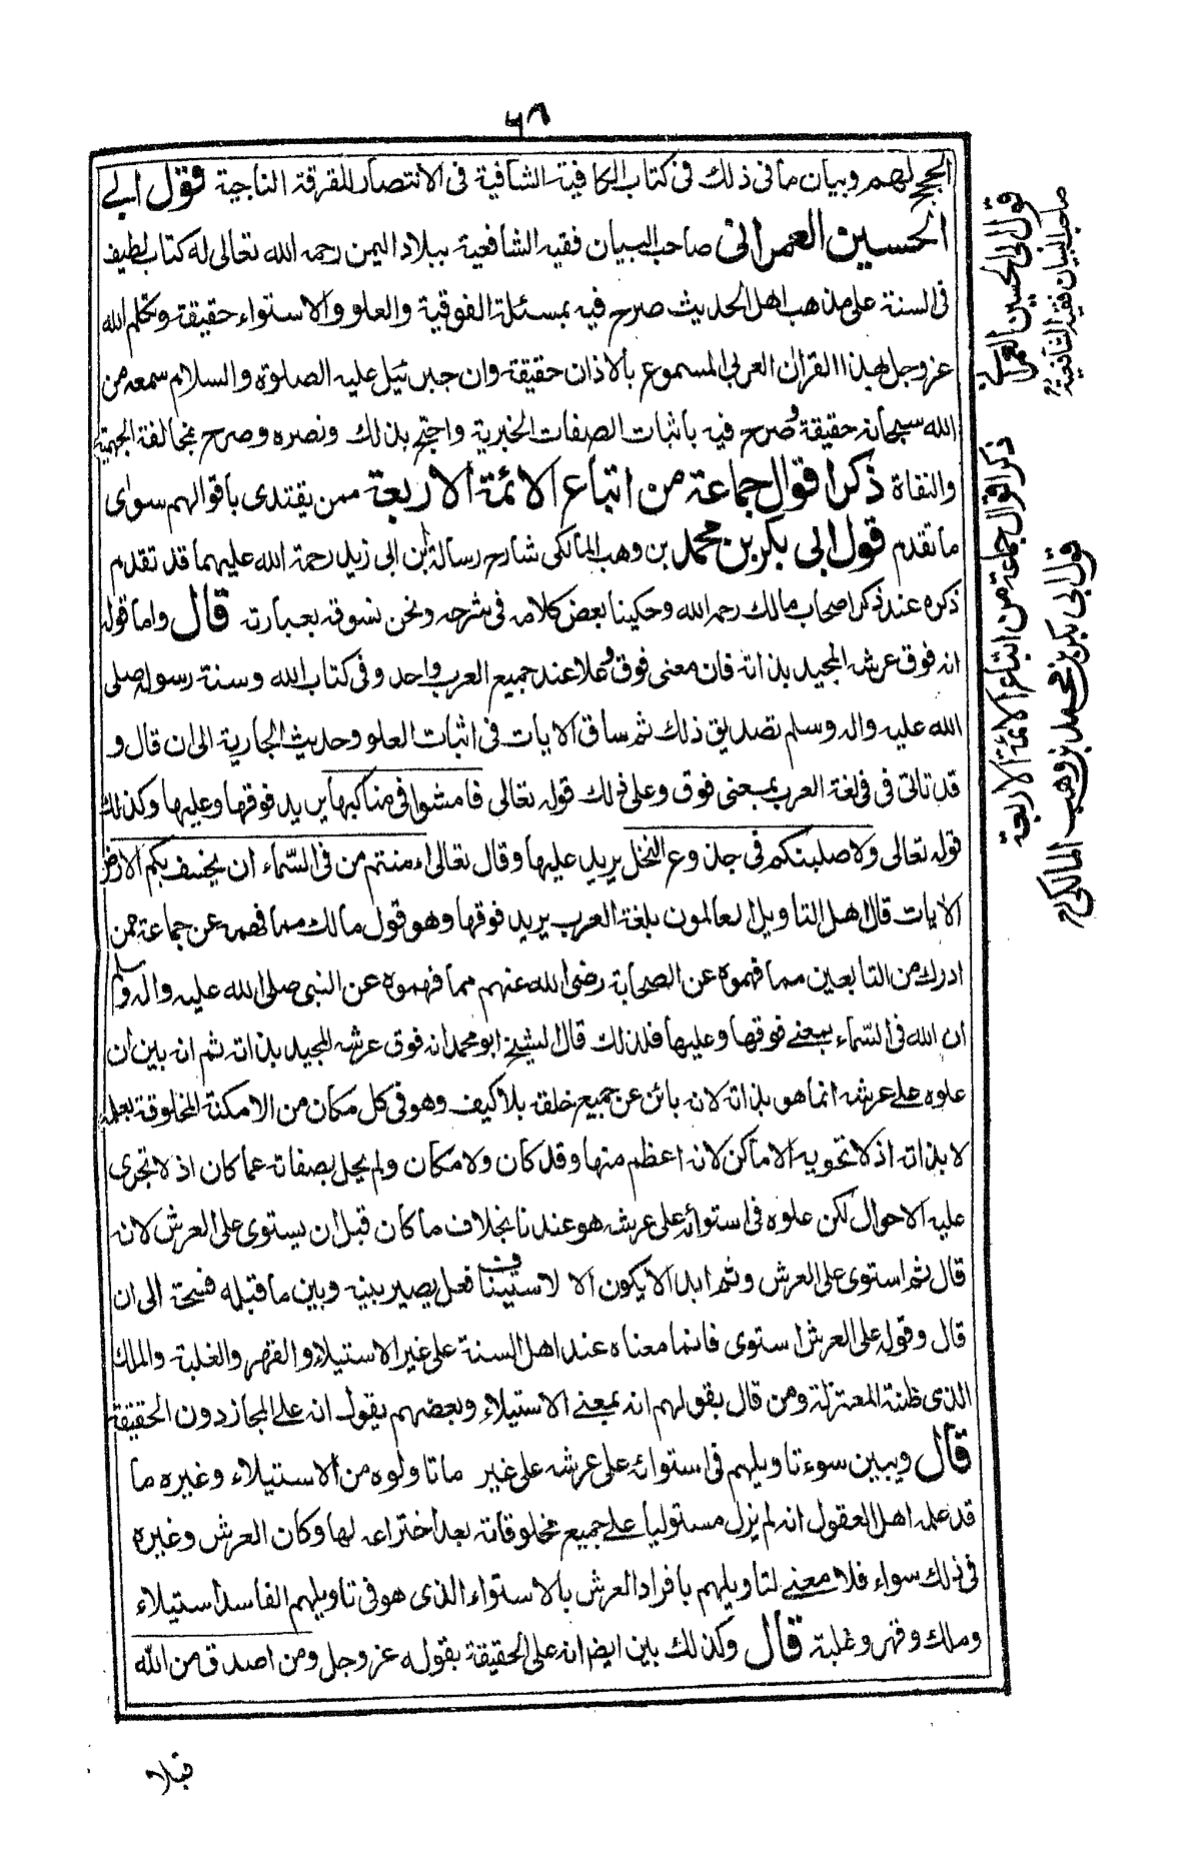 ٦٨
الحجج لهم وبيان ما فى ذلك فى كتاب الكافية الشافية فى الانتصار للفرقة الناجية فقول ابى
الحسين العمرانى صاحب البيان فقيه الشافعية ببلاد اليمن رحمه الله تعالى له كتاب لطيف
فى السنة على مذهب اهل الحديث صرح فيه بمسئلة الفوقية والعلو والاستواء حقيقة وتكلم الله
عز وجل بهذا القران العربى المسموع بالاذان حقيقة وان جبرئيل عليه الصلوة والسلام سمعه من
الله سبحانه حقيقة وصرح فيه باثبات الصفات الخبرية واحتج بذلك ونصره وصرح بمخالفة الجهمية
والنفاة ذكر اقوال جماعة من اتباع الائمة الاربعة ممن يقتدى باقوالهم سوى
ما تقدم قول ابى بكر بن محمد بن وهب المالكى شارح رسالة ابن ابى زيد رحمة الله عليهما قد تقدم
ذكره عند ذكر اصحاب مالك رحمه الله وحكينا بعض كلامه فى شرحه ونحن نسوقه بعبارته قال واما قوله
انه فوق عرشه المجيد بذاته فان معنى فوق وعلا عند جميع العرب واحد وفى كتاب الله وسنة رسوله صلى
الله عليه واله وسلم تصديق ذلك ثم ساق الايات فى اثبات العلو وحديث الجارية الى ان قال و
قد تاتى فى فى لغة العرب بمعنى فوق وعلى ذلك قوله تعالى فامشوا فى مناكبها يريد فوقها وعليها وكذلك
قوله تعالى ولاصلبنكم فى جذوع النخل يريد عليها وقال تعالى اءمنتم من فى السّماء ان يخسف بكم الارض
الايات قال اهل التاويل العالمون بلغة العرب يريد فوقها وهو قول مالك مما فهمه عن جماعة ممن
ادرك من التابعين مما فهموه عن الصحابة رضى الله عنهم مما فهموه عن النبى صلى الله عليه واله وسلم
ان الله فى السّماء بمعنى فوقها وعليها فلذلك قال الشيخ ابو محمد انه فوق عرشه المجيد بذاته ثم انه بين ان
علوه على عرشه انما هو بذاته لانه بائن عن جميع خلقه بلا كيف وهو فى كل مكان من الامكنة المخلوقة بعلمه
لا بذاته اذ لا تحويه الاماكن لانه اعظم منها وقد كان ولا مكان ولم يحل بصفاته عما كان اذ لا تجرى
عليه الاحوال لكن علوه فى استوائه على عرشه هو عندنا بخلاف ما كان قبل ان يستوى على العرش لانه
قال ثم استوى على العرش وثم ابدا لا يكون الا لاستيناف فعل يصير بينه وبين ما قبله فسحة الى ان
قال وقوله على العرش استوى فانما معناه عند اهل السنة على غير الاستيلاء والقهر والغلبة والملك
الذى ظنته المعتزلة ومن قال بقولهم انه بمعنى الاستيلاء وبعضهم يقول انه على المجاز دون الحقيقة
قال ويبين سوء تاويلهم فى استوائه على عرشه على غير ما تاولوه من الاستيلاء وغيره ما
قد علمه اهل العقول انه لم يزل مستوليا على جميع مخلوقاته بعد اختراعه لها وكان العرش وغيره
فى ذلك سواء فلا معنى لتاويلهم بافراد العرش بالاستواء الذى هو فى تاويلهم الفاسد استيلاء
وملك وقهر وغلبة قال وكذلك بين ايضا انه على الحقيقة بقوله عز وجل ومن اصدق من الله
قول ابى الحسين العمرانى
صاحب البيان فقيه الشافعية رح
ذكر اقوال جماعة من اتباع الائمة الاربعة
قول ابى بكر بن محمد بن وهب المالكى رح
قيلا